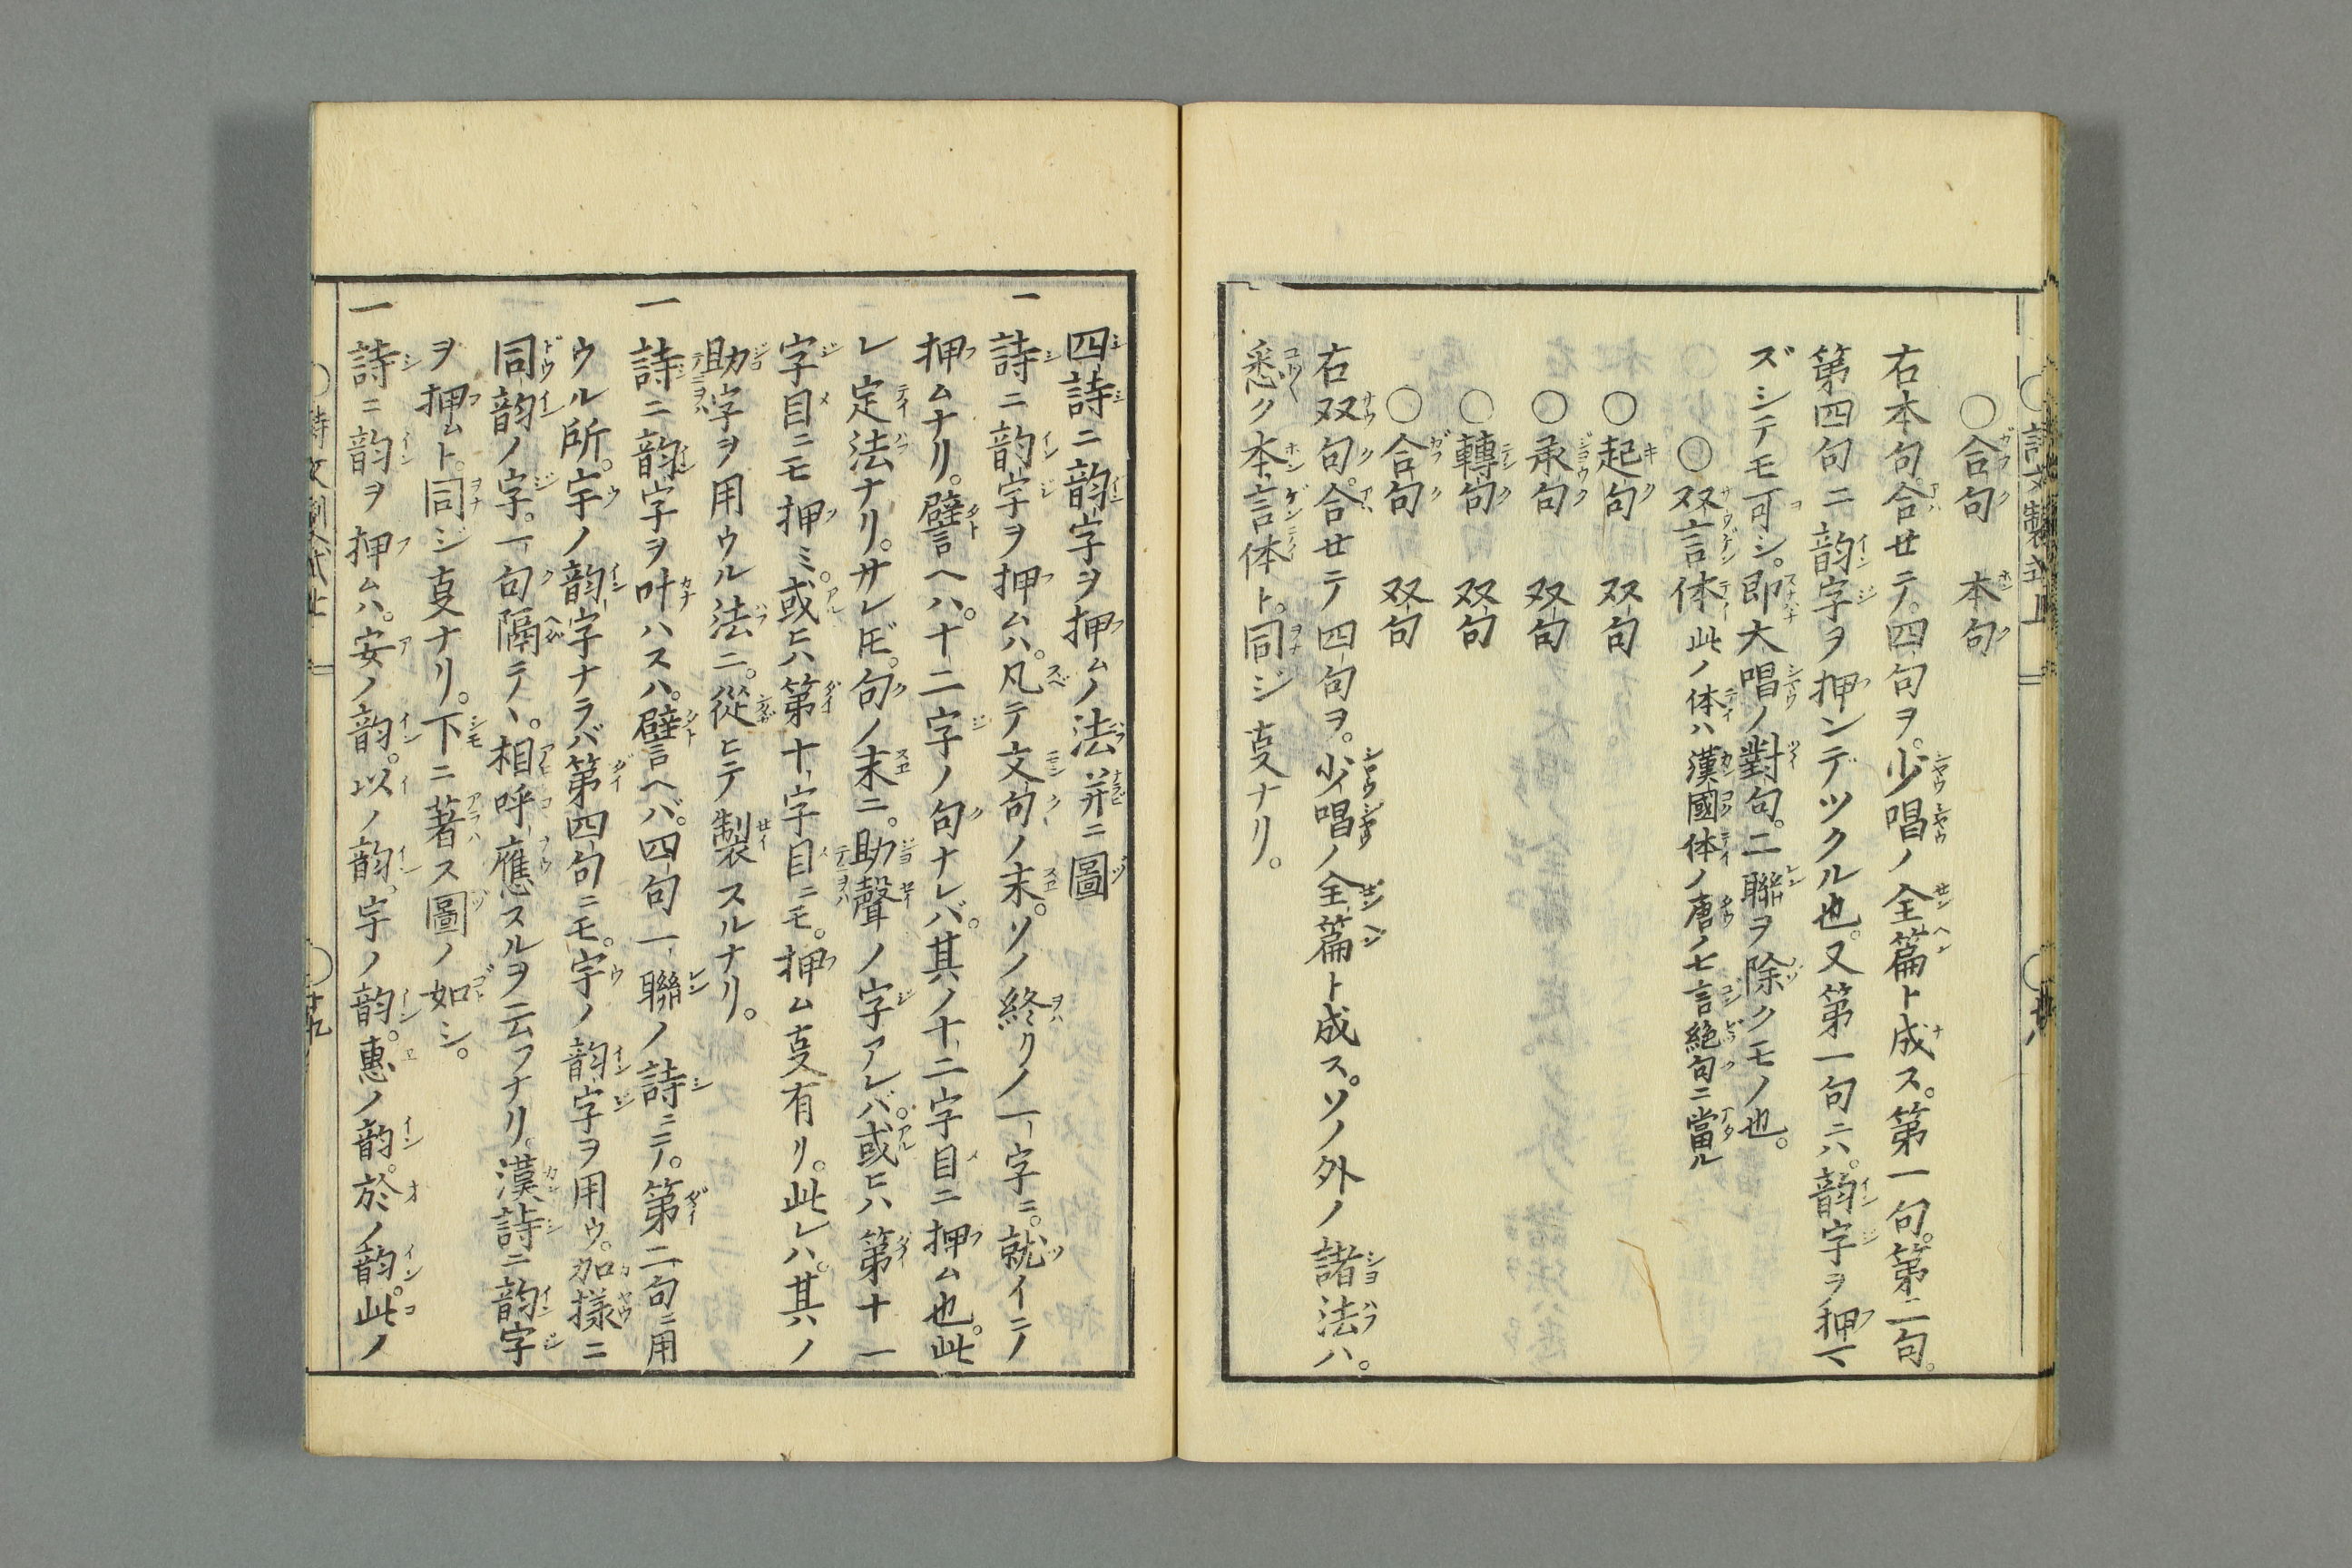 ○合句　本句
右本句合セテ。四句ヲ。少唱ノ全篇ト成ス。第一句。第二句。
第四句ニ韵字ヲ押ンデツクル也。又第一句ニハ。韵字ヲ押マ
ズシテモ可シ。即大唱ノ對句。二聯ヲ除クモノ也。
○双言体此ノ体ハ漢國体ノ唐ノ七言絶句ニ當ル
○起句　双句
○承句　双句
○轉句　双句
○合句　双句
右双句。合セテ四句ヲ。少唱ノ全篇ト成ス。ソノ外ノ諸法ハ。
悉ク本言体ト。同ジ㕝ナリ。
四詩ニ韵字ヲ押ムノ法并ニ圖
一詩ニ韵字ヲ押ムハ。凡テ文句ノ末。ソノ終リノ一字ニ。就イテノ
押ムナリ。譬ヘハ。十二字ノ句ナレバ。其ノ十二字目ニ押ム也。此
レ定法ナリ。サレ𪜈。句ノ末ニ。助聲ノ字アレバ。或ヒハ第十一
字目ニモ押ミ。或ヒハ第十字目ニモ。押ム㕝有リ。此レハ。其ノ
助字ヲ用ウル法ニ。從ヒテ製スルナリ。
一詩ニ韵字ヲ叶ハスハ。譬ヘバ。四句一聯ノ詩ニテ。第二句ニ用
ウル所。宇ノ韵字ナラバ第四句ニモ。宇ノ韵字ヲ用ウ。加樣ニ
同韵ノ字。一句隔テヽ。相呼應スルヲ云フナリ。漢詩ニ韵字
ヲ押ムト。同ジ㕝ナリ。下ニ著ス圖ノ如シ。
一詩ニ韵ヲ押ムハ。安ノ韵。以ノ韵。宇ノ韵。惠ノ韵。於ノ韵。此ノ